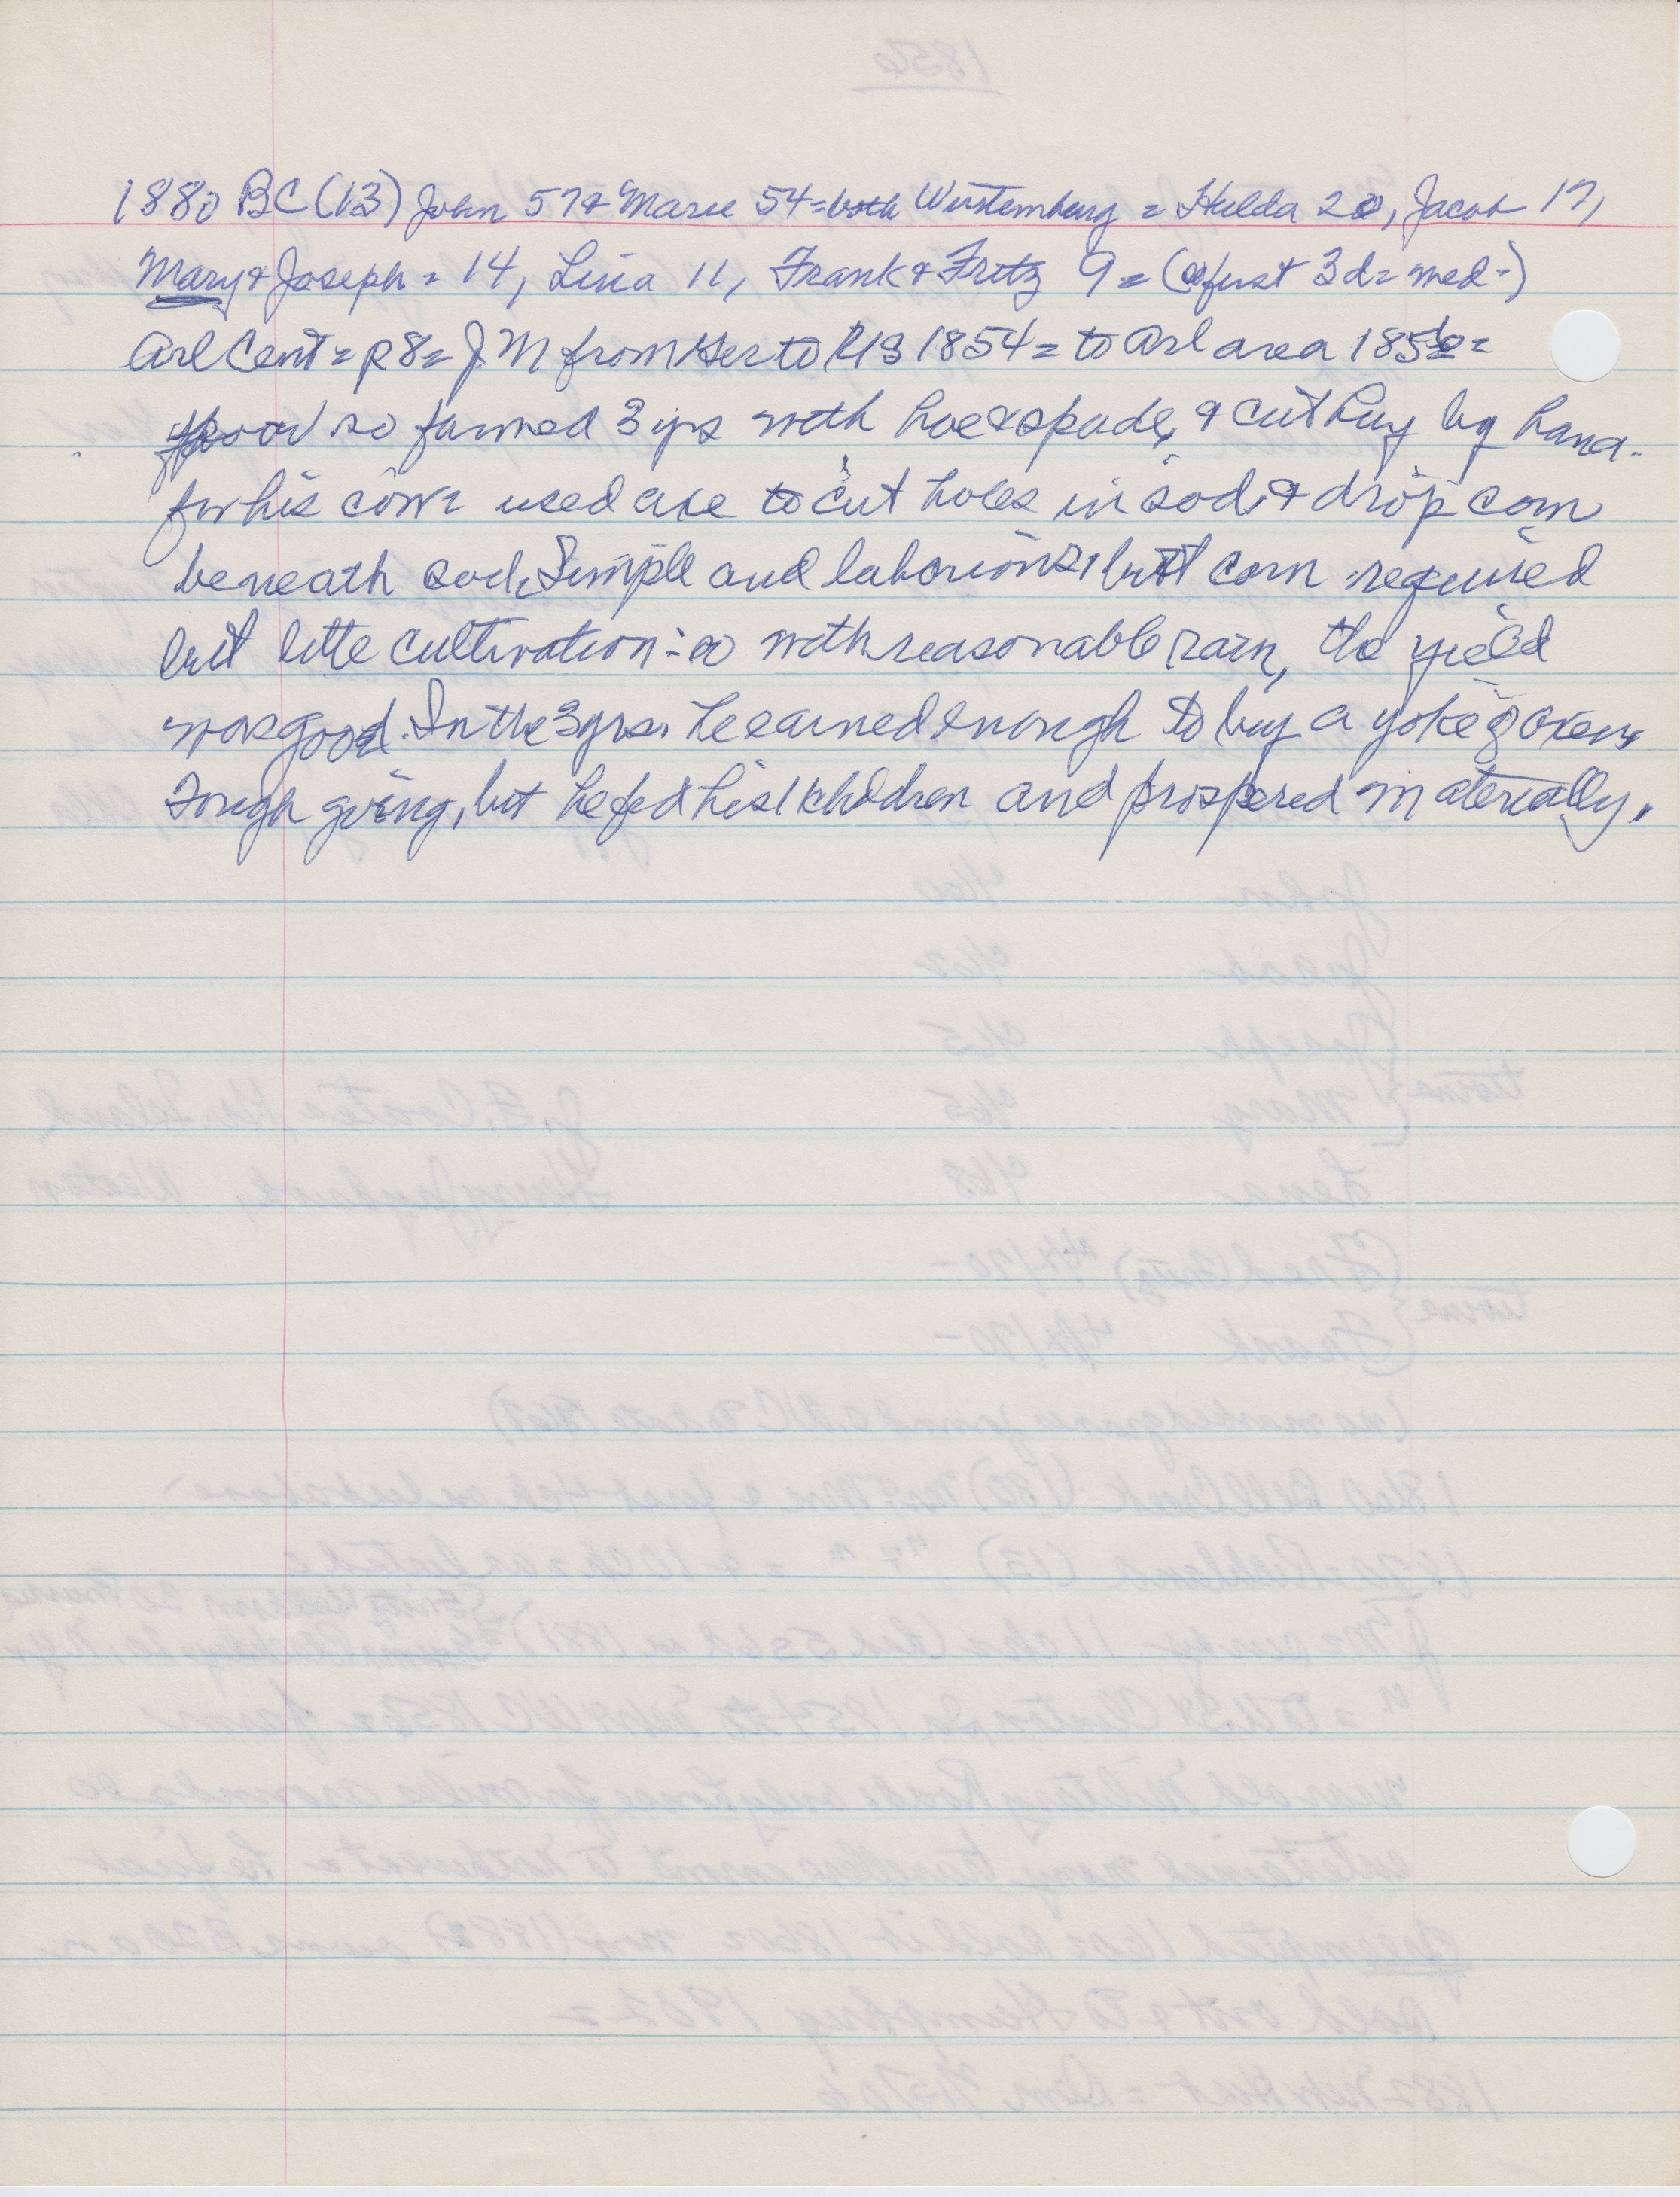 1880 BC (13) John 57 & Marie 54 = both Würtemburg = Hulda 20, Jacob 17,
Mary & Joseph = 14, Lina 11, Frank & Fritz 9 = ( first 3 d = med - )
Arl Cent = p 8 = J. M from Ger to US 1854 = to Arl area 1856 =
poor so farmed 3 yrs with hoe & spade, & cut hay by hand.
for his cow = used axe to cut holes in sod, & drop corn
beneath sod. Simple and laborious, but corn required
but litte cultivation - & with reasonable rain, the yield
was good. In the 3 yrs. he earned enough to buy a yoke of oxen.
Tough going, but he fed his 11 children and prospered materially.